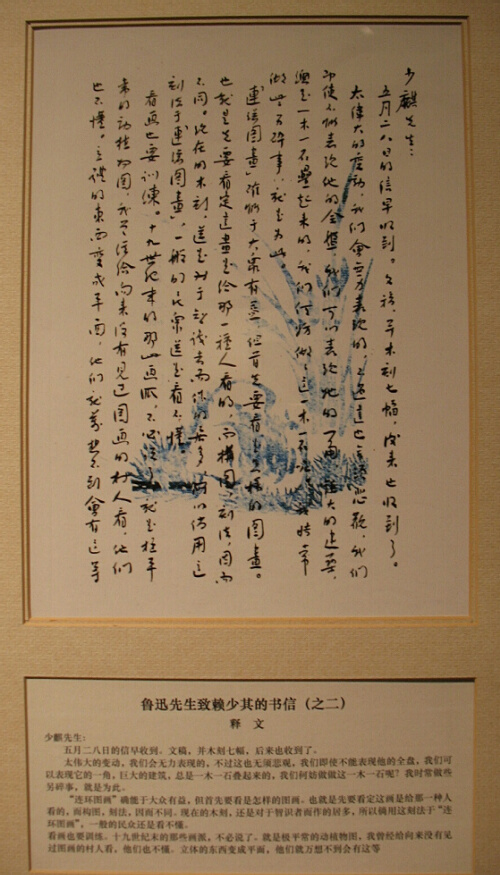 少麒先生：
五月二八日的信早收到。文稿，并木刻七幅，後来也收到了。
太偉大的变动，我们會无力表现的，不过这也无须悲觀，我们
即使不能表现他的全盤，我们可以表现他的一角，巨大的建築，
總是一木一石叠起来的，我们何妨做做这一木一石呢？我時常
做些另碎事，就是为此。
「連環图畫」確能于大众有益，但首先要看是怎样的图畫。
也就是先要看定这畫是给那一種人看的，而構图，刻法，因而
不同。现在的木刻，还是对于智識者而作的居多，所以倘用这
刻法于「連環图畫」，一般的民衆还是看不懂。
看画也要训練。十九世纪末的那些画派，不必说了，就是极平
常的动植物图，我曾经给向来没有見过图画的村人看，他们
也不懂。立體的東西变成平面，他们就萬想不到會有这等
鲁迅先生致赖少其的书信（之二）
释 文
少麒先生：
五月二八日的信早收到。文稿，并木刻七幅，后来也收到了。
太伟大的变动，我们会无力表现的，不过这也无须悲观，我们即使不能表现他的全盘，我们可
以表现它的一角，巨大的建筑，总是一木一石叠起来的，我们何妨做做这一木一石呢？我时常做些
另碎事，就是为此。
“连环图画”确能于大众有益，但首先要看是怎样的图画。也就是先要看定这画是给那一种人
看的，而构图，刻法，因而不同。现在的木刻，还是对于智识者而作的居多，所以倘用这刻法于“连
环图画”，一般的民众还是看不懂。
看画也要训练。十九世纪末的那些画派，不必说了。就是极平常的动植物图，我曾经给向来没有见
过图画的村人看，他们也不懂。立体的东西变成平面，他们就万想不到会有这等